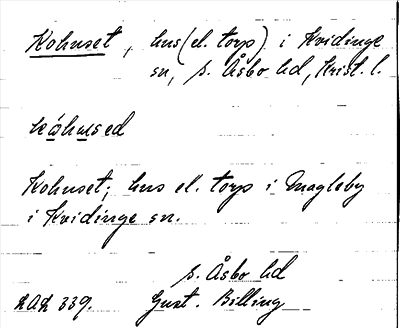 Kohuset, hus (el. torp) i Kvidinge
sn, S. Åsbo hd, Krist. l.
kåhused
Kohuset; hus el. torp i Magleby
i Kvidinge sn.
S. Åsbo hd
339. Gust. Billing